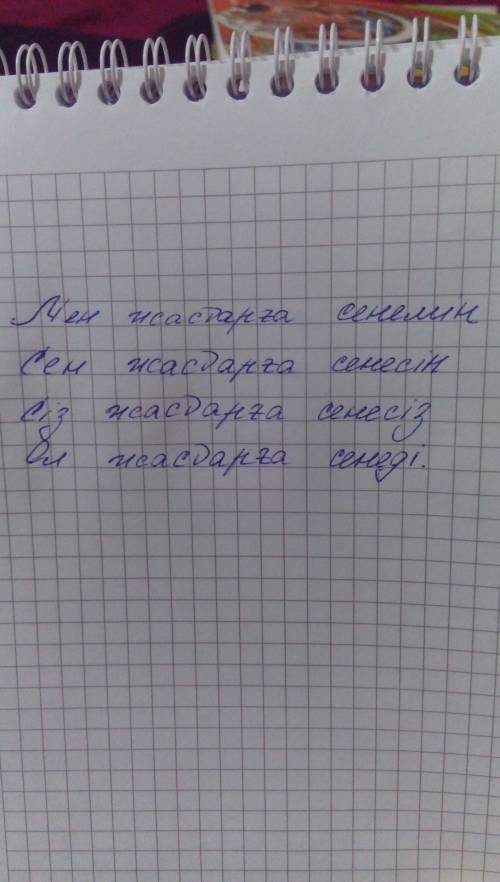 Мен жастарға сенемін
Сен жасдарға сенесін
Сіз жасдарға сенесіз
Ол жасдарға сенеді.